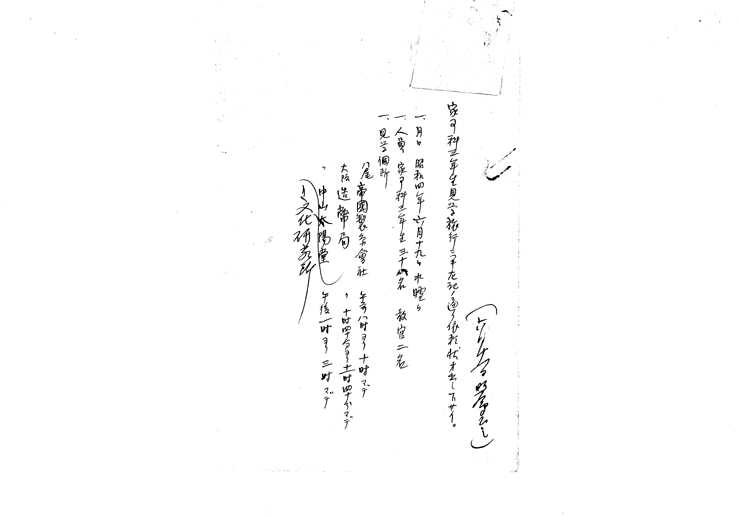 家事科三年生見学旅行ニ付左記ノ通リ依頼状オ出シ下サイ。
一、月日 昭和四年六月十九日 水曜日
一、人員 家事科三年生三十名 教官二名
一、見学個所
八尾 帝國製糸會社 午前八時ヨリ十時マデ
大阪 造幣局 〃 十時四十分ヨリ十一時四十分マデ
〃 中山太陽堂 午後一時ヨリ三時マデ
文化研究所